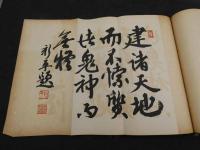 建諸天地
而不悖質
諸鬼神而
無疑
題